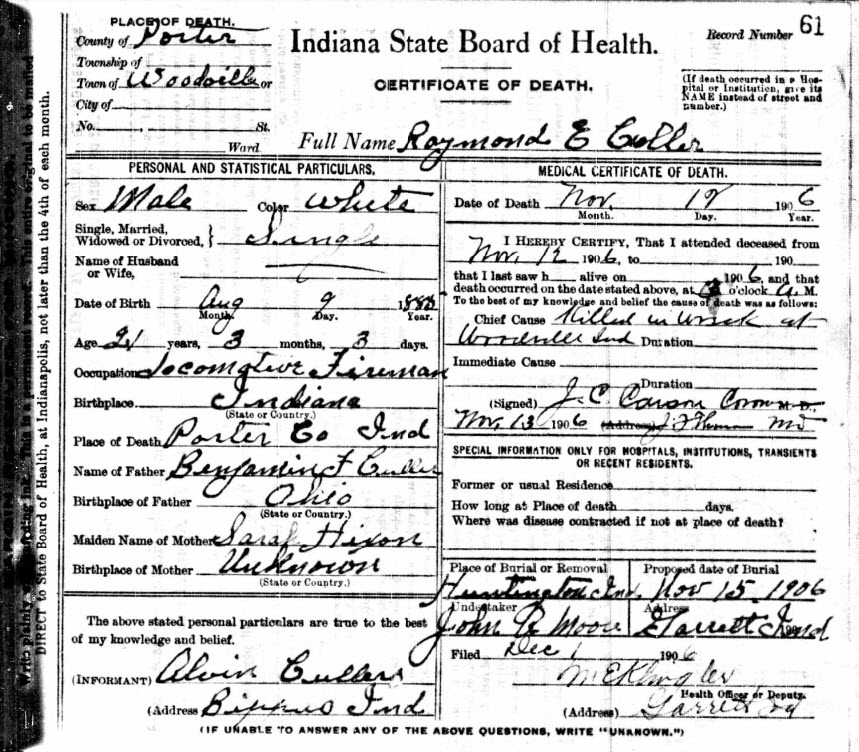 PLACE OF DEATH.
County of Porter
Township of
Town of Woodville or
City of
No. , St.
Ward.
Indiana State Board of Health.
CERTIFICATE OF DEATH.
Record Number 61
(If death occurred in a Hos-
pital or Institution, give its
NAME instead of street and
number.)
Full Name Raymond E Culler
PERSONAL AND STATISTICAL PARTICULARS.
Sex Male Color White
Single, Married,
Widowed or Divorced, } Single
Name of Husband
or Wife,
Date of Birth Aug 9 188
Month. Day. Year.
Age 21 years, 3 months, 3 days.
Occupation Locomotive Fireman
Birthplace Indiana
(State or Country.)
Place of Death Porter Co Ind
Name of Father Benjamin F Culler
Birthplace of Father Ohio
(State or Country.)
Maiden Name of Mother Sarah Hixon
Birthplace of Mother Unknown
(State or Country.)
The above stated personal particulars are true to the best
of my knowledge and belief.
(INFORMANT) Alvin Cullers
(Address Bippus Ind
MEDICAL CERTIFICATE OF DEATH.
Date of Death Nov. 12 1906
Month. Day. Year.
I HEREBY CERTIFY, That I attended deceased from
Nov. 12 1906, to 190
that I last saw h alive on 1906, and that
death occurred on the date stated above, at o'clock A. M.
To the best of my knowledge and belief the cause of death was as follows:
Chief Cause Killed in Wreck at
Woodville Ind Duration
Immediate Cause
Duration
(Signed) J. C. Carson Coroner M.D.,
Nov. 13 1906 (Address) MD
SPECIAL INFORMATION ONLY FOR HOSPITALS, INSTITUTIONS, TRANSIENTS
OR RECENT RESIDENTS.
Former or usual Residence
How long at Place of death days.
Where was disease contracted if not at place of death?
Place of Burial or Removal Proposed date of Burial
Huntington Ind. Nov 15 1906
Undertaker Address
John A Moore Garrett Ind
Filed Dec 1 1906
M E Klingler
Health Officer or Deputy.
(Address) Garrett Ind
(IF UNABLE TO ANSWER ANY OF THE ABOVE QUESTIONS, WRITE "UNANOWN.")
DIRECT to State Board of Health, at Indianapolis, not later than the 4th of each month.